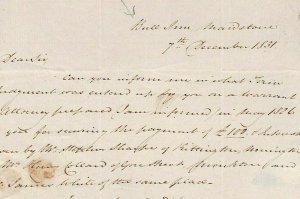 Bull Inn Maidstone
7th December 1831.
Dear Sir
Can you inform me in what Term
Judgment was entered up by you on a warrant
Attorney prepared I am informed in May 1826
you for securing the payment of £100
by Mr. Stephen Sharpe of
Mr. Collard of and
James White of the same place.